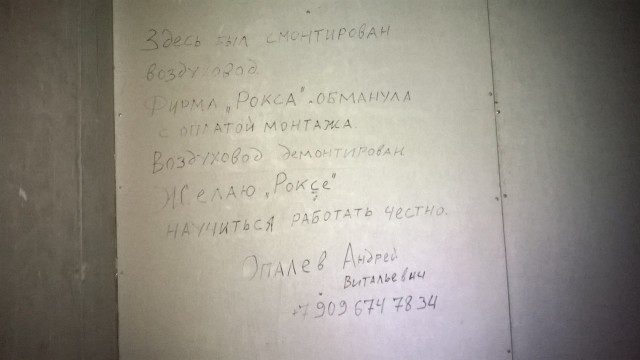 Здесь был смонтирован
воздуховод
Фирма „Рокса"-обманула
с оплатой монтажа.
Воздуховод демонтирован
Желаю „Роксе"
научиться работать честно.
Опалев Андрей
Витальевич
+7 909 674 78 34